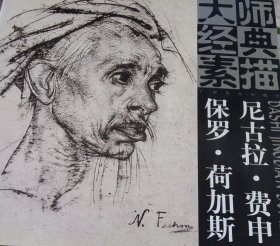 大师经典素描
尼古拉·费申
保罗·荷加斯
N. Fechin